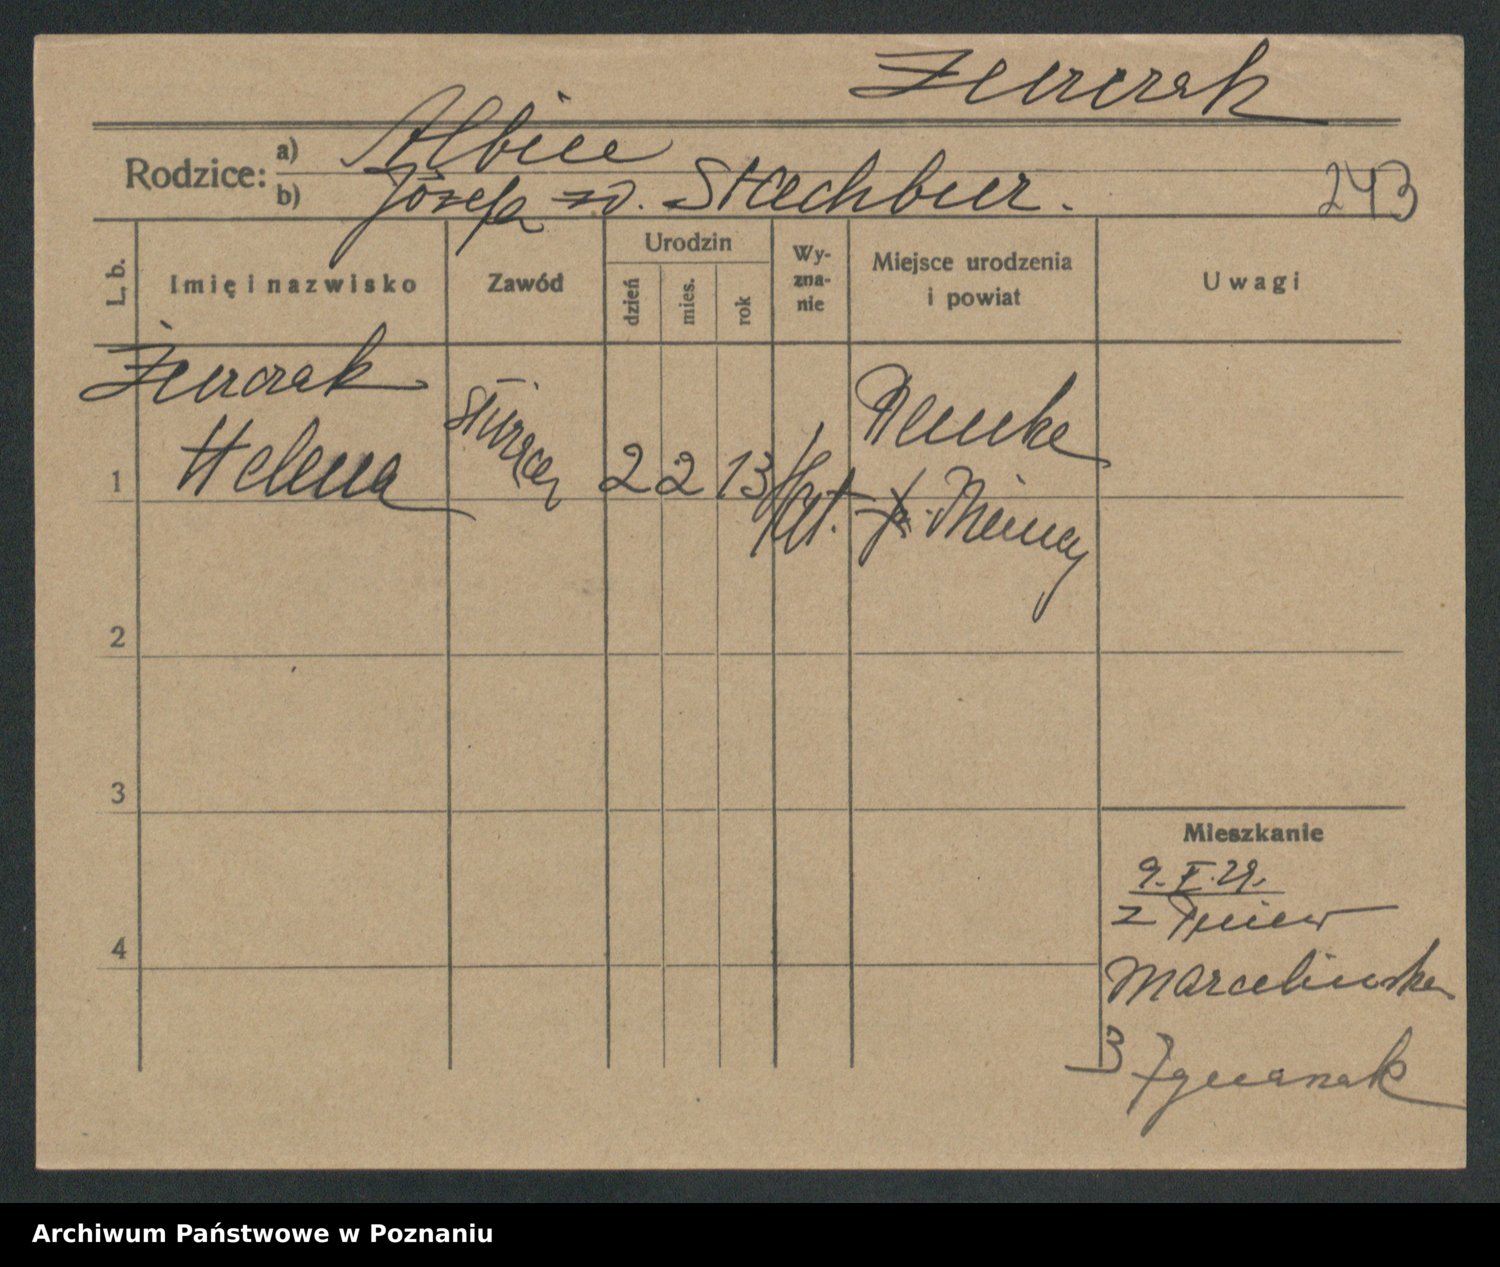 Żurczak
Rodzice:
a) Albin
b) Józefa zd. Stachbur.
243
L. b.
Imię i nazwisko
Zawód
Urodzin
dzień
mies.
rok
Wy-
zna-
nie
Miejsce urodzenia
i powiat
Uwagi
Żurczak
1 Helena
służąca
2 2 13
kat.
Niemcy
2
3
4
Mieszkanie
z Pniew
Marcelińska
3 Ignaszak
Archiwum Państwowe w Poznaniu